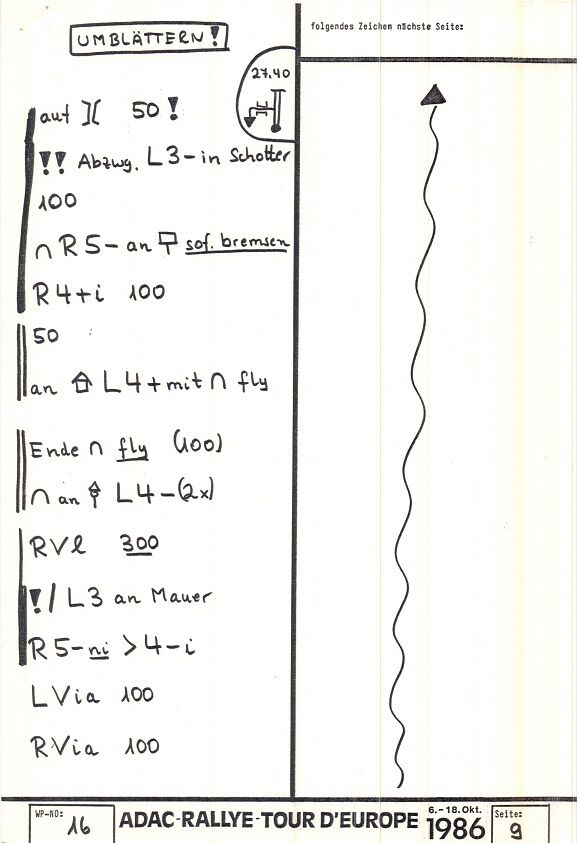 UMBLÄTTERN!
folgendes Zeichen nächste Seite:
27.40
auf ][ 50!
!! Abzwg. L3- in Schotter
100
∩ R5- an sof. bremsen
R4+i 100
50
an L4+ mit ∩ fly
Ende ∩ fly (100)
∩ an L4-(2x)
RVl 300
!/ L3 an Mauer
R5-ni >4-i
LVia 100
RVia 100
WP-NO: 16
ADAC-RALLYE-TOUR D'EUROPE
6.-18.Okt.
1986
Seite: 9